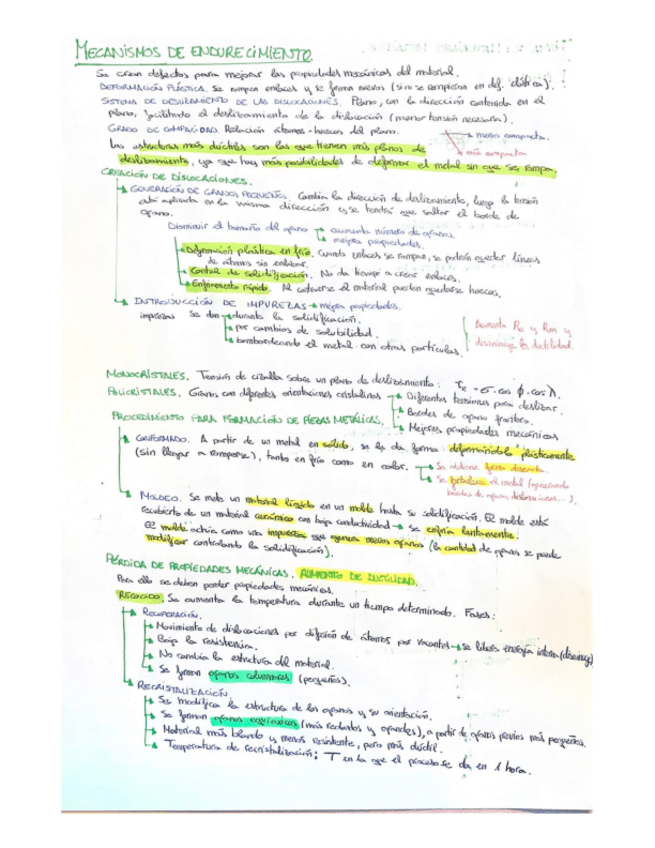 MECANISMOS DE ENDURECIMIENTO.
Se crean defectos para mejorar las propiedades mecánicas del material.
DEFORMACIÓN PLÁSTICA. Se rompen enlaces y se forman nuevos (si no se rompieran en def. elástica).
SISTEMA DE DESLIZAMIENTO DE LAS DISLOCACIONES. Plano, con la dirección contenida en el
plano, facilitando el deslizamiento de la dislocación (menor tensión necesaria).
GRADO DE COMPACIDAD. Relación átomos-huecos del plano.
menos compacta.
más compacta
Las estructuras más dúctiles son las que tienen más planos de
deslizamiento, ya que hay más posibilidades de deformar el metal sin que se rompa.
CREACIÓN DE DISLOCACIONES.
GENERACIÓN DE GRANOS PEQUEÑOS. Cambia la dirección de deslizamiento, luego la tensión
está aplicada en la misma dirección y se tendrá que saltar el borde de
grano.
Disminuir el tamaño del grano → aumenta número de granos.
mejora propiedades.
Deformación plástica en frío. Cuando enlaces se rompan, se podrán quedar líneas
de átomos sin enlazar.
Control de solidificación. No da tiempo a crear enlaces.
Enfriamiento rápido. Al contraerse el material pueden quedarse huecos.
INTRODUCCIÓN DE IMPUREZAS → mejora propiedades.
impurezas se dan → durante la solidificación.
por cambios de solubilidad.
bombardeando el metal con otras partículas.
Aumenta Re y Rm y
disminuye la ductilidad.
MONOCRISTALES. Tensión de cizalla sobre un plano de deslizamiento: τR = σ · cos ϕ · cos λ.
POLICRISTALES. Granos con diferentes orientaciones cristalinas → Diferentes tensiones para deslizar.
Bordes de grano
Mejores propiedades mecánicas
PROCEDIMIENTO PARA FORMACIÓN DE PIEZAS METÁLICAS.
CONFORMADO. A partir de un metal en sólido, se le da forma deformándolo plásticamente
(sin llegar a romperse), tanto en frío como en calor. → Se obtiene forma deseada.
Se fortalece el metal (apareciendo
bordes de grano, dislocaciones...).
MOLDEO. Se mete un material líquido en un molde hasta su solidificación. El molde está
recubierto de un material cerámico con baja conductividad → se enfría lentamente.
El molde actúa como una impureza que genera nuevos granos (la cantidad de granos se puede
modificar controlando la solidificación).
PÉRDIDA DE PROPIEDADES MECÁNICAS. AUMENTO DE DUCTILIDAD.
Para ello se deben perder propiedades mecánicas.
RECOCIDO. Se aumenta la temperatura durante un tiempo determinado. Fases:
RECUPERACIÓN.
Movimiento de dislocaciones por difusión de átomos por vacantes → se libera energía interna
Baja la resistencia.
No cambia la estructura del material.
Se forman granos columnares (pequeños).
RECRISTALIZACIÓN.
Se modifica la estructura de los granos y su orientación.
Se forman granos equiaxiales (más redondos y grandes), a partir de granos previos más pequeños.
Material más blando y menos resistente, pero más dúctil.
Temperatura de recristalización: T en la que el proceso se da en 1 hora.